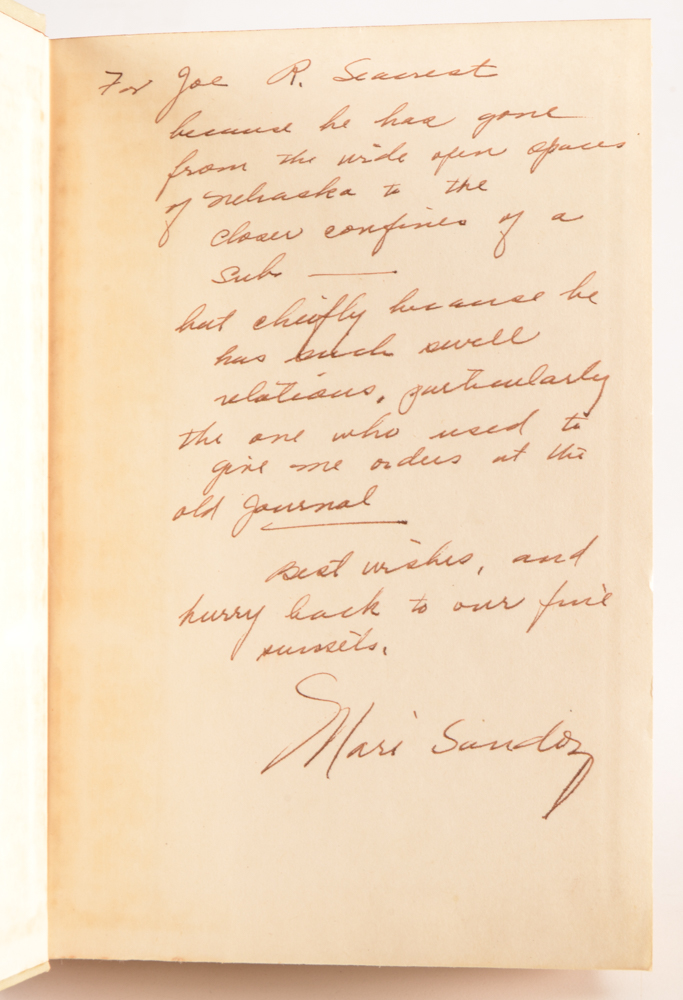 For Joe R. Seacrest
because he has gone
from the wide open spaces
of Nebraska to the
closer confines of a
sub —
but chiefly because he
has such swell
relations, particularly
the one who used to
give me orders at the
old Journal
Best wishes, and
hurry back to our fine
sunsets.
Mari Sandoz